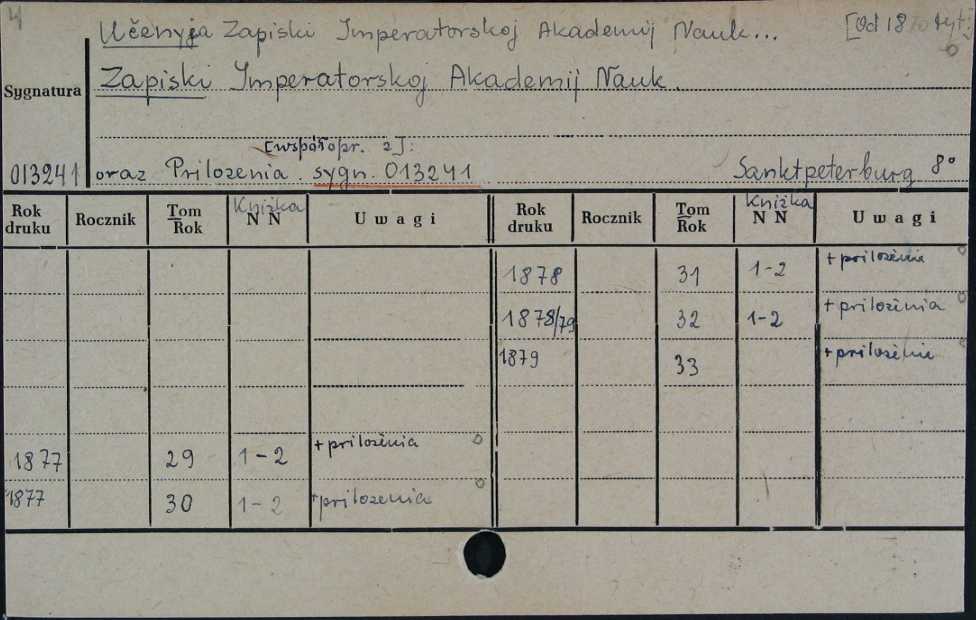 Učenyja Zapiski Imperatorskoj Akademij Nauk... [Od 18 tyt:
Zapiski Imperatorskoj Akademij Nauk.
Sygnatura
[współopr. z]:
013241 oraz Prilozenia. sygn. 013241 Sanktpeterburg 8°
Rok druku Rocznik Tom Rok Kniżka N N Uwagi Rok druku Rocznik Tom Rok Kniżka N N Uwagi
1878 31 1-2 + prilożenia
1878/79 32 1-2 + prilożenia
1879 33 + prilożenia
1877 29 1-2 + prilożenia
1877 30 1-2 + prilożenia